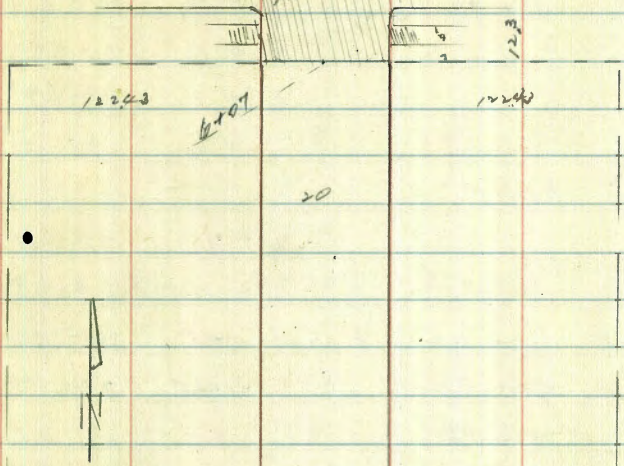 12.3
6
7
122.43
122.43
6+07
20
N